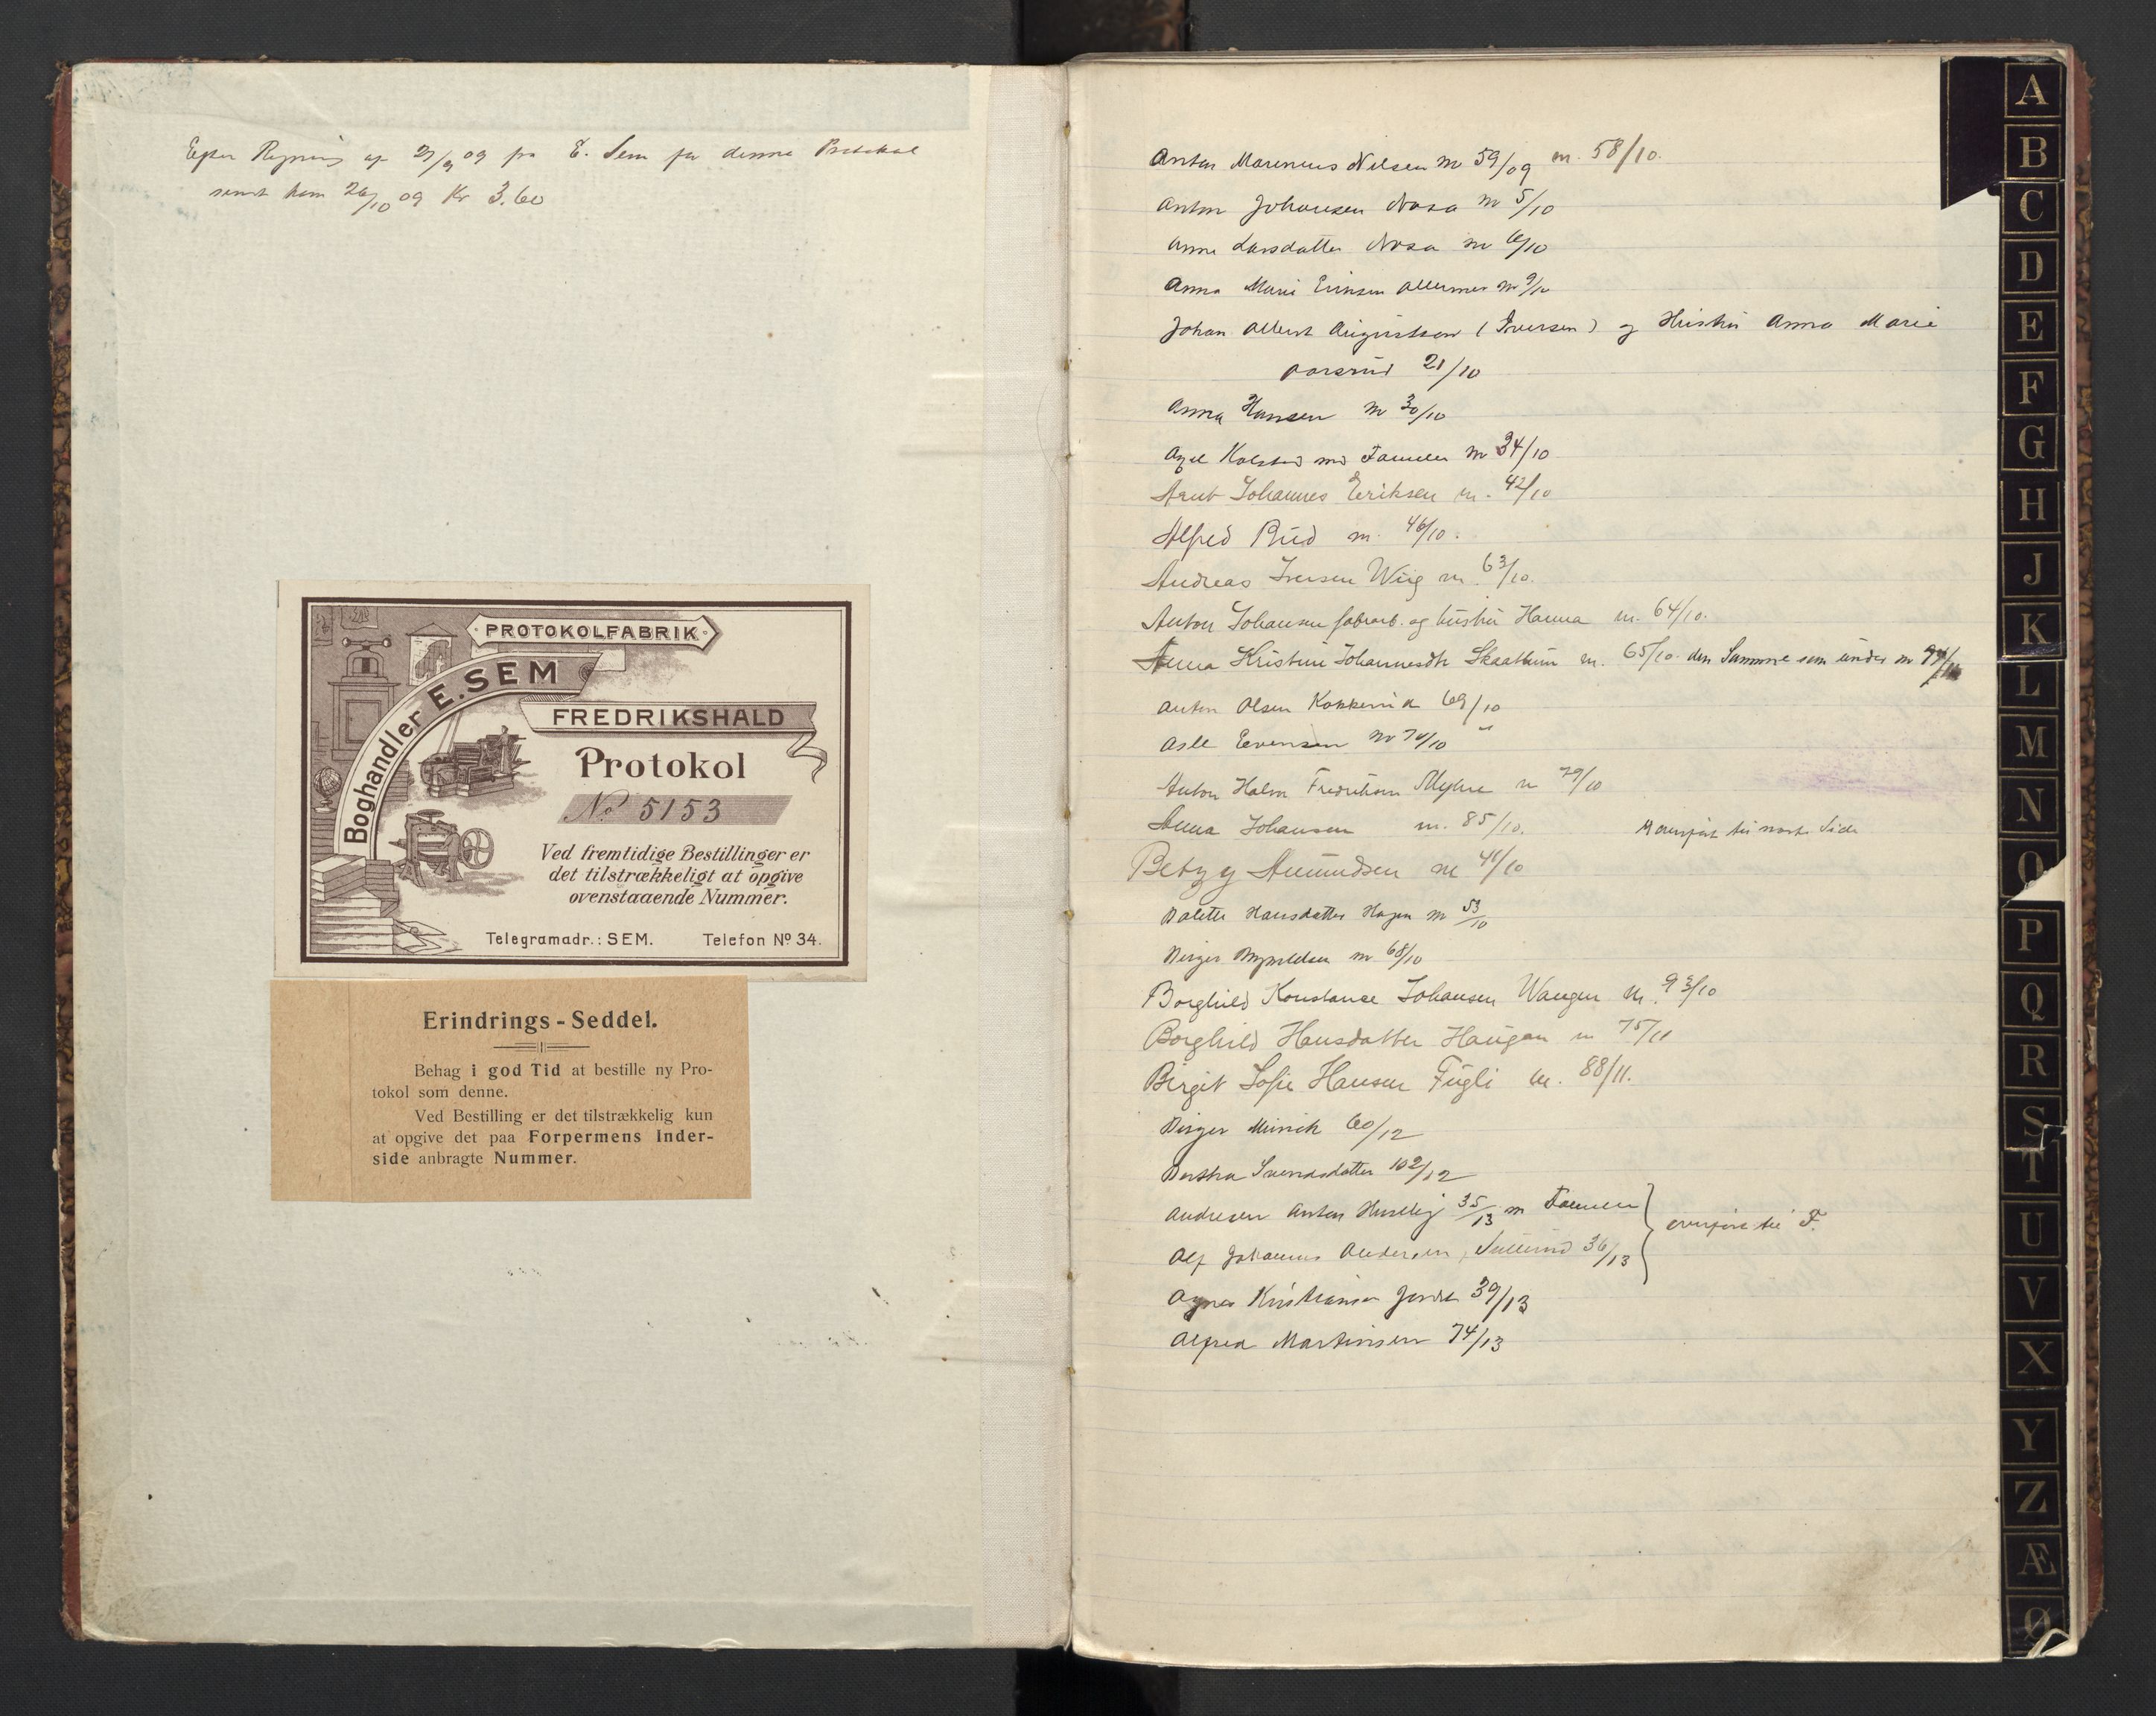 Efter Regning af 27/9 09 fra E. Sem for denne Protokol
sendt ham 26/10 09 Kr 3.60
PROTOKOLFABRIK
Boghandler E. SEM
FREDRIKSHALD
Protokol
No 5153
Ved fremtidige Bestillinger er
det tilstrækkeligt at opgive
ovenstaaende Nummer.
Telegramadr.: SEM. Telefon No 34.
Erindrings-Seddel.
Behag i god Tid at bestille ny Pro-
tokol som denne.
Ved Bestilling er det tilstrækkelig kun
at opgive det paa Forpermens Inder-
side anbragte Nummer.
Anton Marenius Nilsen nr 59/09 nr. 58/10.
Anton Johansen Nasa nr 5/10
Anne Larsdatter Nasa nr 6/10
Anna Marie nr 9/10
Johan Albert Augustson (Iversen) og Hustru Anna Marie
21/10
Anna Hansen nr 30/10
Axel Kolstad med Familie nr 34/10
Johannes Eriksen nr. 42/10
Alfred Rud nr. 46/10.
Andreas Iversen Wiig nr. 63/10.
Anton Johansen fabrarb. og hustru Hanna nr. 64/10.
Anna Kristine Johannesdtr nr. 65/10. den Samme som under nr
Anton Olsen 69/10
Asle Evensen nr 70/10 "
Anton Holm Fredriksen Myhre nr 79/10
Anna Johansen nr. 85/10. A overført til næste Side
Betzy Amundsen nr 41/10
Hansdatter Hagen nr 53/10
Birger nr 68/10
Borghild Konstance Johansen Wangen nr. 93/10
Borghild Hansdatter Haugan nr 75/11
Birgit Sofie Hansen Fugli nr. 88/11.
Birger Minick 60/12
Bertha Svendsdatter 102/12
Andresen Anton 35/13 m Familie
overført til F.
Alf Johannes Andersen, 36/13
Agnes Kristiansen 39/13
Alfred Martinsen 74/13
A
B
C
D
E
F
G
H
J
K
L
M
N
O
P
Q
R
S
T
U
V
X
Y
Z
Æ
Ø